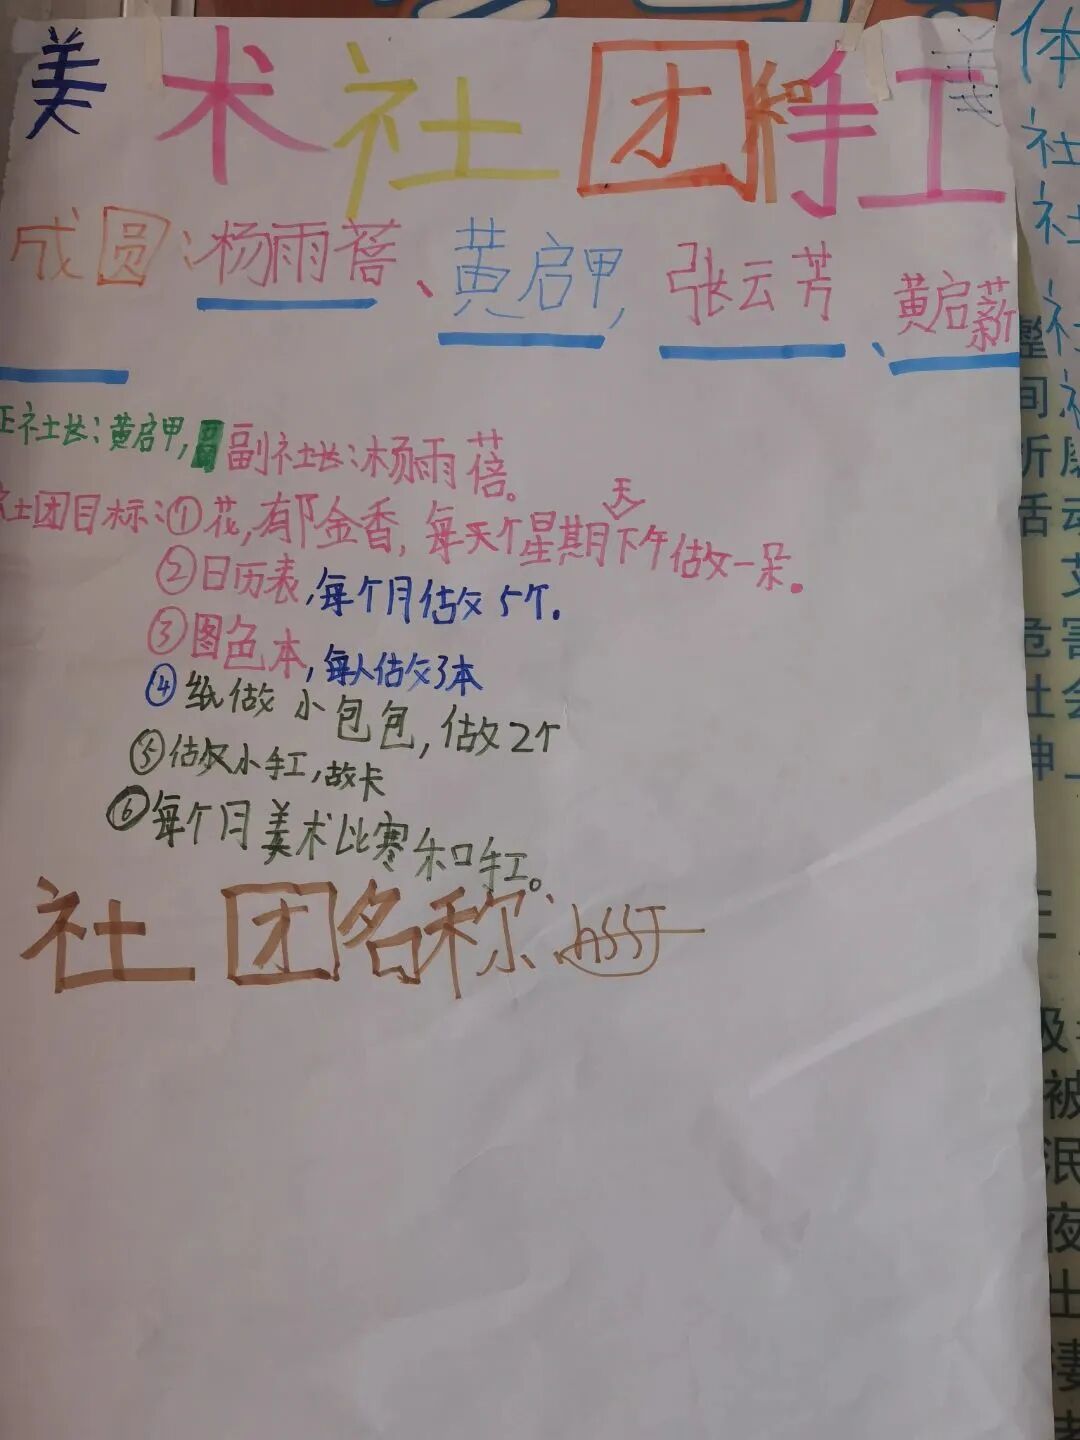 美术社团和手工
成圆：杨雨蓓、黄启甲，张云芳、黄启薪
正社长：黄启甲，副社长：杨雨蓓。
社团目标：①花，郁金香，每天个星期天下午做一朵。
②日历表，每个月做5个.
③图色本，每人做3本
④纸做小包包，做2个
⑤做小手工，故卡
⑥每个月美术比寒和手工。
社团名称：
体
社
社
社
间
折
活动
艾
危害
社会
神
及
被
泯
夜
出
妻